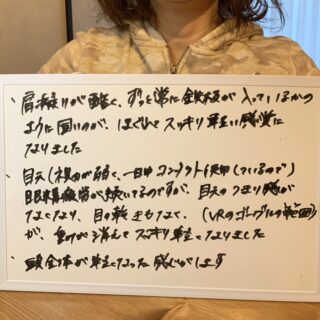 、肩凝りが酷く、ずっと常に鉄板が入っているかの
ように固いのが、ほぐれてスッキリ軽い感覚に
なりました
目元(視力が弱く、一日中コンタクト使用しているので)
眼精疲労が続いてるのですが、目元のつまり感が
なくなり、目の乾きもなく、(VRのゴーグルの範囲)
が、重りが消えてスッキリ軽くなりました
、頭全体が軽くなった感じがします